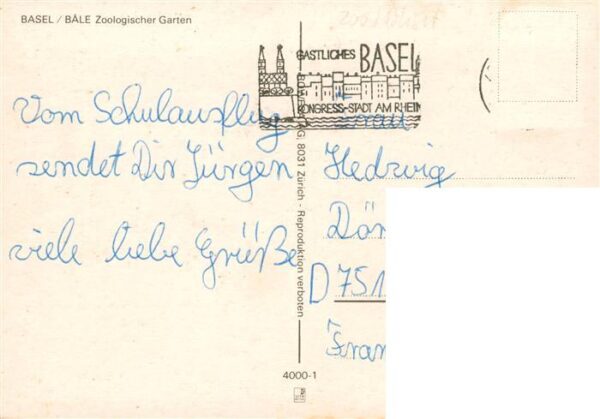 BASEL / BÂLE Zoologischer Garten
GASTLICHES BASEL
KONGRESS-STADT AM RHEIN
Vom Schulausflug
sendet Dir Jürgen
viele liebe Grüße
Frau
Hedwig
Dör
D 751
Fran
AG, 8031 Zürich - Reproduktion verboten
4000-1